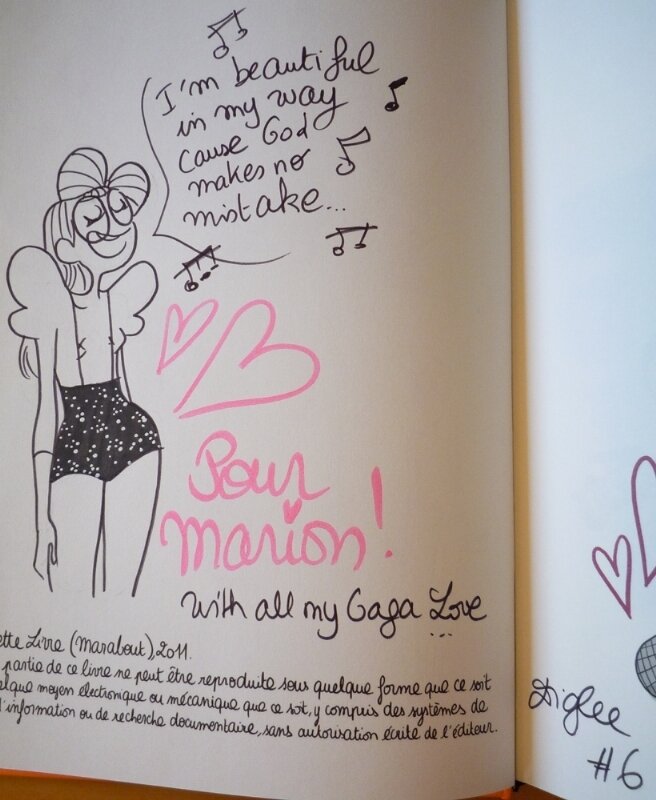 I'm beautiful
in my way
cause God
makes no
mistake...
Pour
Marion!
with all my Gaga Love
ette Livre (Marabout), 2011.
partie de ce livre ne peut être reproduite sous quelque forme que ce soit
elque moyen électronique ou mécanique que ce soit, y compris des systèmes de
l'information ou de recherche documentaire, sans autorisation écrite de l'éditeur.
Diglee
#6